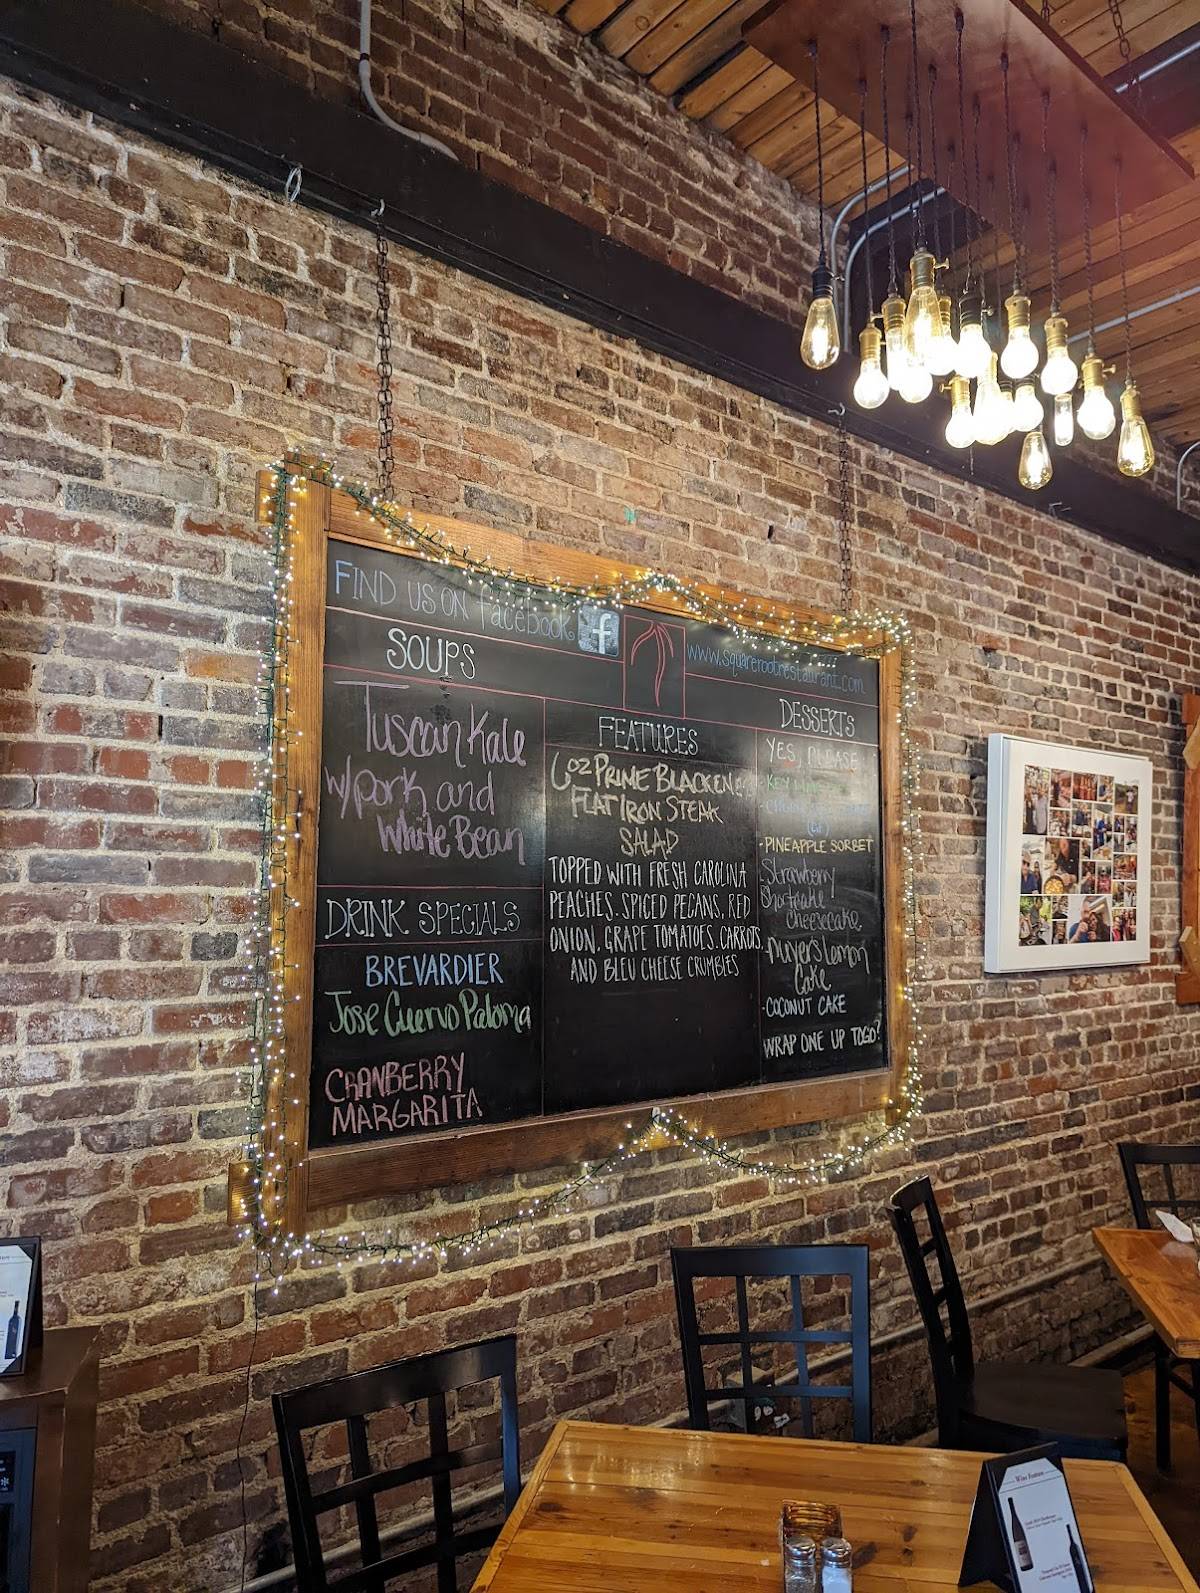 FIND US ON facebook f
www.squarerootrestaurant.com
SOUPS
Tuscan Kale
w/pork and
White Bean
DRINK SPECIALS
BREVARDIER
Jose Cuervo Paloma
CRANBERRY
MARGARITA
FEATURES
6oz PRIME BLACKENED
FLAT IRON STEAK
SALAD
TOPPED WITH FRESH CAROLINA
PEACHES. SPICED PECANS, RED
ONION, GRAPE TOMATOES. CARROTS.
AND BLEU CHEESE CRUMBLES
DESSERTS
YES, PLEASE
KEY LIME
(GF)
-PINEAPPLE SORBET
Strawberry
Shortcake
Cheesecake
Lemon
Cake
-COCONUT CAKE
WRAP ONE UP TOGO?
Wine Feature